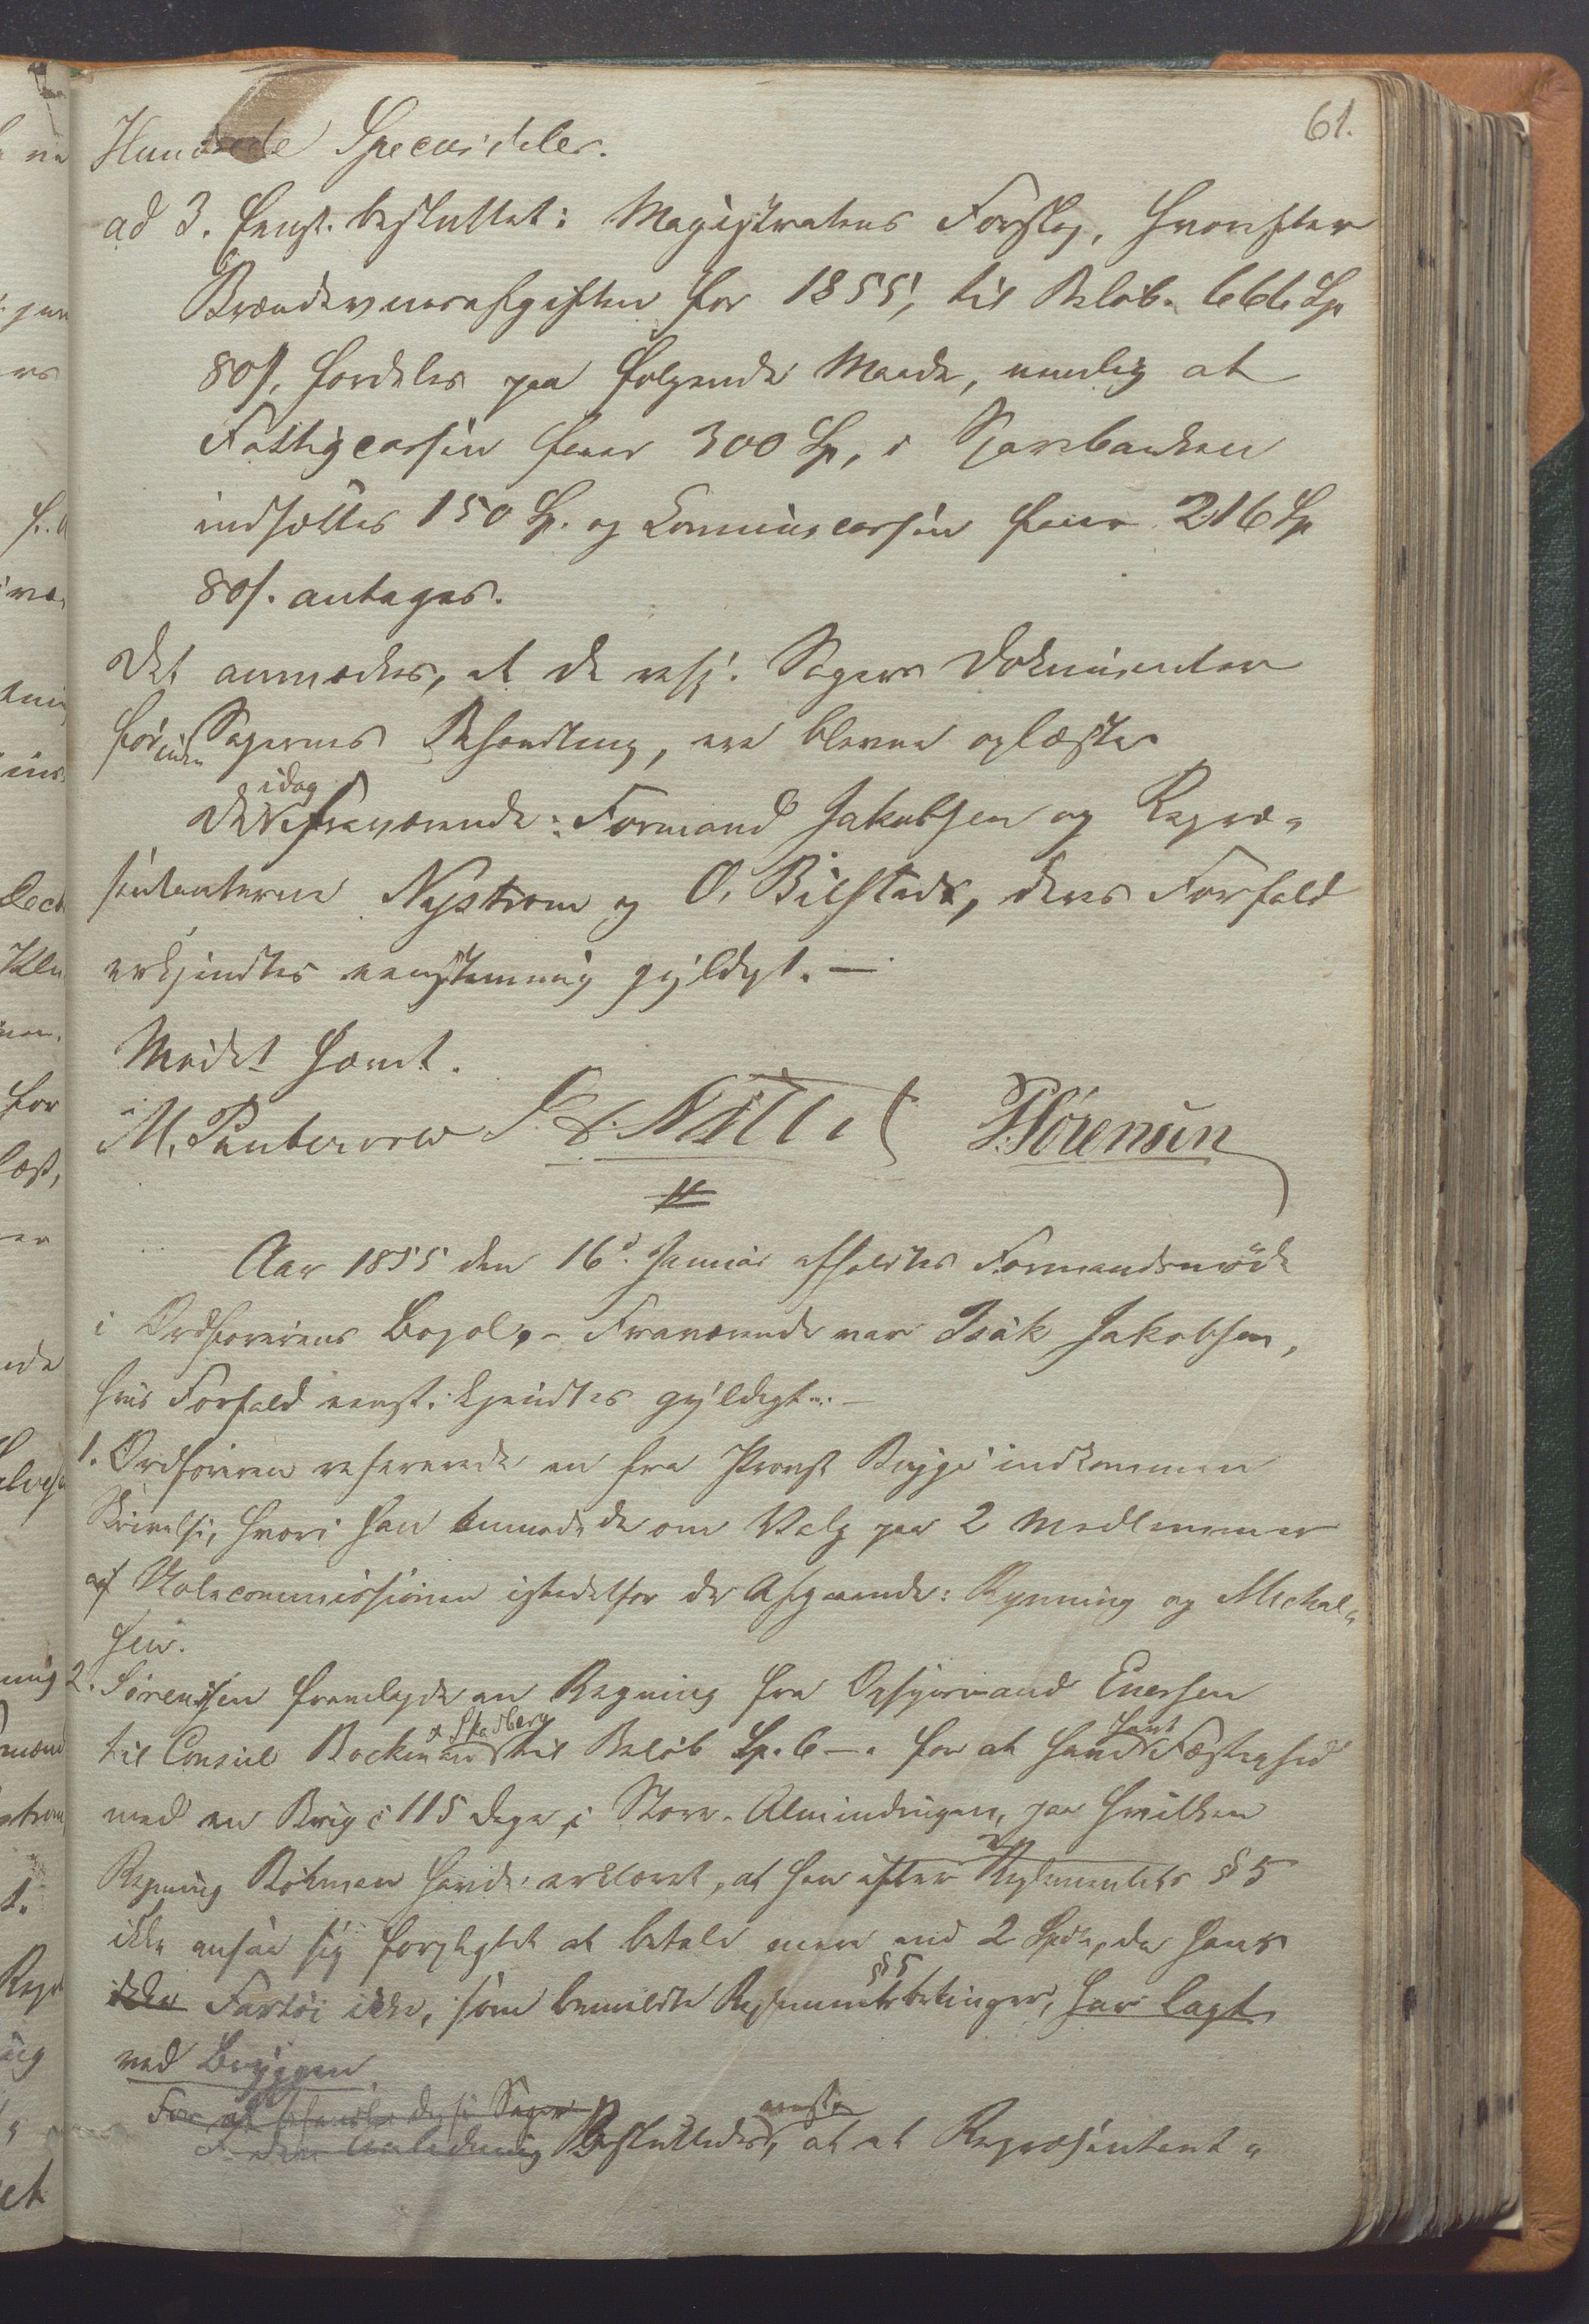 61.
Hundrede Speciesdaler.
ad 3. Eenst. besluttet: Magistratens Forslag, hvorefter
Brændeviinsafgiften for 1855, til Beløb 666 Sp
80 s, fordeles paa følgende Maade, nemlig at
Fattigcassen faaer 300 Sp, i Sparebanken
indsættes 150 Sp. og Communecassen faaer 216 Sp
80 s. antages.
Det anmærkes, at de resp. Sagers Dokumenter
før Sagernes Behandling, ere blevne oplæste
idag
Fraværende: Formand Jakobsen og Repræ-
sentanterne Nystrøm og O. Bilstad, deres Forfald
erkjendtes eenstemmig gyldigt. —
Mødet hævet.
J. Sørensen
Aar 1855 den 16d Januar afholdtes Formandsmøde
i Ordførerens Bopæl. - Fraværende var Isak Jakobsen,
hvis Forfald eenst. kjendtes gyldigt. -
1. Ordføreren refererede en fra Provst Bugge indkommen
Skrivelse, hvori han anmodede om Valg paa 2 Medlemmer
af Skolecommissionen istedetfor de Afgaaende: Rynning og Michal-
sen.
2. Sørensen fremlagde en Regning fra Opsynsmand Enersen
til Consul Bockman til Beløb Sp. 6 -. for at have havt Fæstighed
med en Brig i 115 Dage i Store-Almindingen, paa hvilken
Regning Bokman havde erklæret, at han efter Reglementets § 5
ikke ansaae sig forpligtet at betale mere end 2 Spd, da hans
ikke Fartøi ikke, som bemeldte Reglements § 5 betinger, har lagt
ved Bryggen.
For at behandle disse Sager
I den Anledning Besluttedes eenst., at et Repræsentant-